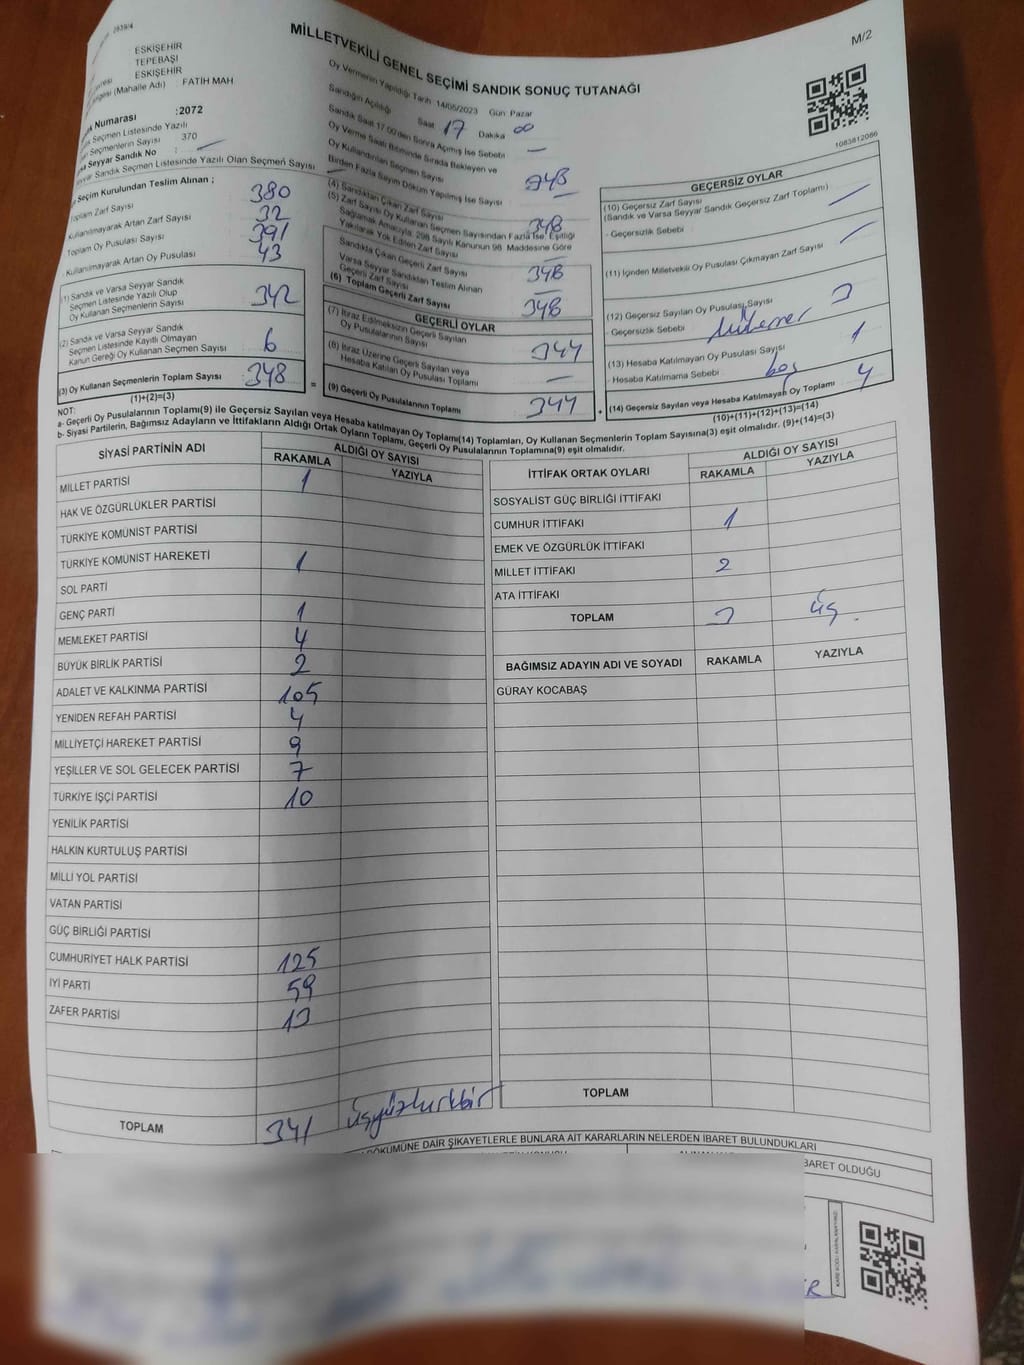 MİLLETVEKİLİ GENEL SEÇİMİ SANDIK SONUÇ TUTANAĞI
M/2
ESKİŞEHİR
TEPEBAŞI
ESKİŞEHİR
(Mahalle Adı) : FATİH MAH
Numarası :2072
Seçmen Listesinde Yazılı
Seçmenlerin Sayısı 370
Seyyar Sandık No :
Sandık Seçmen Listesinde Yazılı Olan Seçmen Sayısı
Seçim Kurulundan Teslim Alınan ;
Toplam Zarf Sayısı 380
Kullanılmayarak Artan Zarf Sayısı 32
Toplam Oy Pusulası Sayısı 391
Kullanılmayarak Artan Oy Pusulası 43
(1) Sandık ve Varsa Seyyar Sandık
Seçmen Listesinde Yazılı Olup
Oy Kullanan Seçmenlerin Sayısı 342
(2) Sandık ve Varsa Seyyar Sandık
Seçmen Listesinde Kayıtlı Olmayan
Kanun Gereği Oy Kullanan Seçmen Sayısı 6
(3) Oy Kullanan Seçmenlerin Toplam Sayısı 348
(1)+(2)=(3)
Oy Vermenin Yapıldığı Tarih :14/05/2023 Gün: Pazar
Sandığın Açılışı Saat 17 Dakika 00
Sandık Saat 17:00'den Sonra Açılmış İse Sebebi –
Oy Verme Saati Bitiminde Sırada Bekleyen ve
Oy Kullandırılan Seçmen Sayısı
348
Birden Fazla Sayım Döküm Yapılmış İse Sayısı –
(4) Sandıktan Çıkan Zarf Sayısı 348
(5) Zarf Sayısı Oy Kullanan Seçmen Sayısından Fazla İse, Eşitliği
Sağlamak Amacıyla; 298 Sayılı Kanunun 98. Maddesine Göre
Yakılarak Yok Edilen Zarf Sayısı –
Sandıkta Çıkan Geçerli Zarf Sayısı 348
Varsa Seyyar Sandıktan Teslim Alınan
Geçerli Zarf Sayısı –
(6) Toplam Geçerli Zarf Sayısı 348
GEÇERLİ OYLAR
(7) İtiraz Edilmeksizin Geçerli Sayılan
Oy Pusulalarının Sayısı 344
(8) İtiraz Üzerine Geçerli Sayılan veya
Hesaba Katılan Oy Pusulası Toplamı –
(9) Geçerli Oy Pusulalarının Toplamı 344
1083812086
GEÇERSİZ OYLAR
(10) Geçersiz Zarf Sayısı
(Sandık ve Varsa Seyyar Sandık Geçersiz Zarf Toplamı)
- Geçersizlik Sebebi
(11) İçinden Milletvekili Oy Pusulası Çıkmayan Zarf Sayısı
(12) Geçersiz Sayılan Oy Pusulası Sayısı 3
- Geçersizlik Sebebi
(13) Hesaba Katılmayan Oy Pusulası Sayısı 1
- Hesaba Katılmama Sebebi boş
(14) Geçersiz Sayılan veya Hesaba Katılmayan Oy Toplamı 4
(10)+(11)+(12)+(13)=(14)
NOT:
a- Geçerli Oy Pusulalarının Toplamı(9) ile Geçersiz Sayılan veya Hesaba katılmayan Oy Toplamı(14) Toplamları, Oy Kullanan Seçmenlerin Toplam Sayısına(3) eşit olmalıdır. (9)+(14)=(3)
b- Siyasi Partilerin, Bağımsız Adayların ve İttifakların Aldığı Ortak Oyların Toplamı, Geçerli Oy Pusulalarının Toplamına(9) eşit olmalıdır.
SİYASİ PARTİNİN ADI ALDIĞI OY SAYISI
RAKAMLA YAZIYLA
MİLLET PARTİSİ 1
HAK VE ÖZGÜRLÜKLER PARTİSİ
TÜRKİYE KOMÜNİST PARTİSİ
TÜRKİYE KOMÜNİST HAREKETİ 1
SOL PARTİ
GENÇ PARTİ 1
MEMLEKET PARTİSİ 4
BÜYÜK BİRLİK PARTİSİ 2
ADALET VE KALKINMA PARTİSİ 105
YENİDEN REFAH PARTİSİ 4
MİLLİYETÇİ HAREKET PARTİSİ 9
YEŞİLLER VE SOL GELECEK PARTİSİ 7
TÜRKİYE İŞÇİ PARTİSİ 10
YENİLİK PARTİSİ
HALKIN KURTULUŞ PARTİSİ
MİLLİ YOL PARTİSİ
VATAN PARTİSİ
GÜÇ BİRLİĞİ PARTİSİ
CUMHURİYET HALK PARTİSİ 125
İYİ PARTİ 59
ZAFER PARTİSİ 13
TOPLAM 341 üçyüzkırkbir
İTTİFAK ORTAK OYLARI ALDIĞI OY SAYISI
RAKAMLA YAZIYLA
SOSYALİST GÜÇ BİRLİĞİ İTTİFAKI
CUMHUR İTTİFAKI 1
EMEK VE ÖZGÜRLÜK İTTİFAKI
MİLLET İTTİFAKI 2
ATA İTTİFAKI
TOPLAM 3 üç
BAĞIMSIZ ADAYIN ADI VE SOYADI RAKAMLA YAZIYLA
GÜRAY KOCABAŞ
TOPLAM
DÖKÜMÜNE DAİR ŞİKAYETLERLE BUNLARA AİT KARARLARIN NELERDEN İBARET BULUNDUKLARI
İBARET OLDUĞU